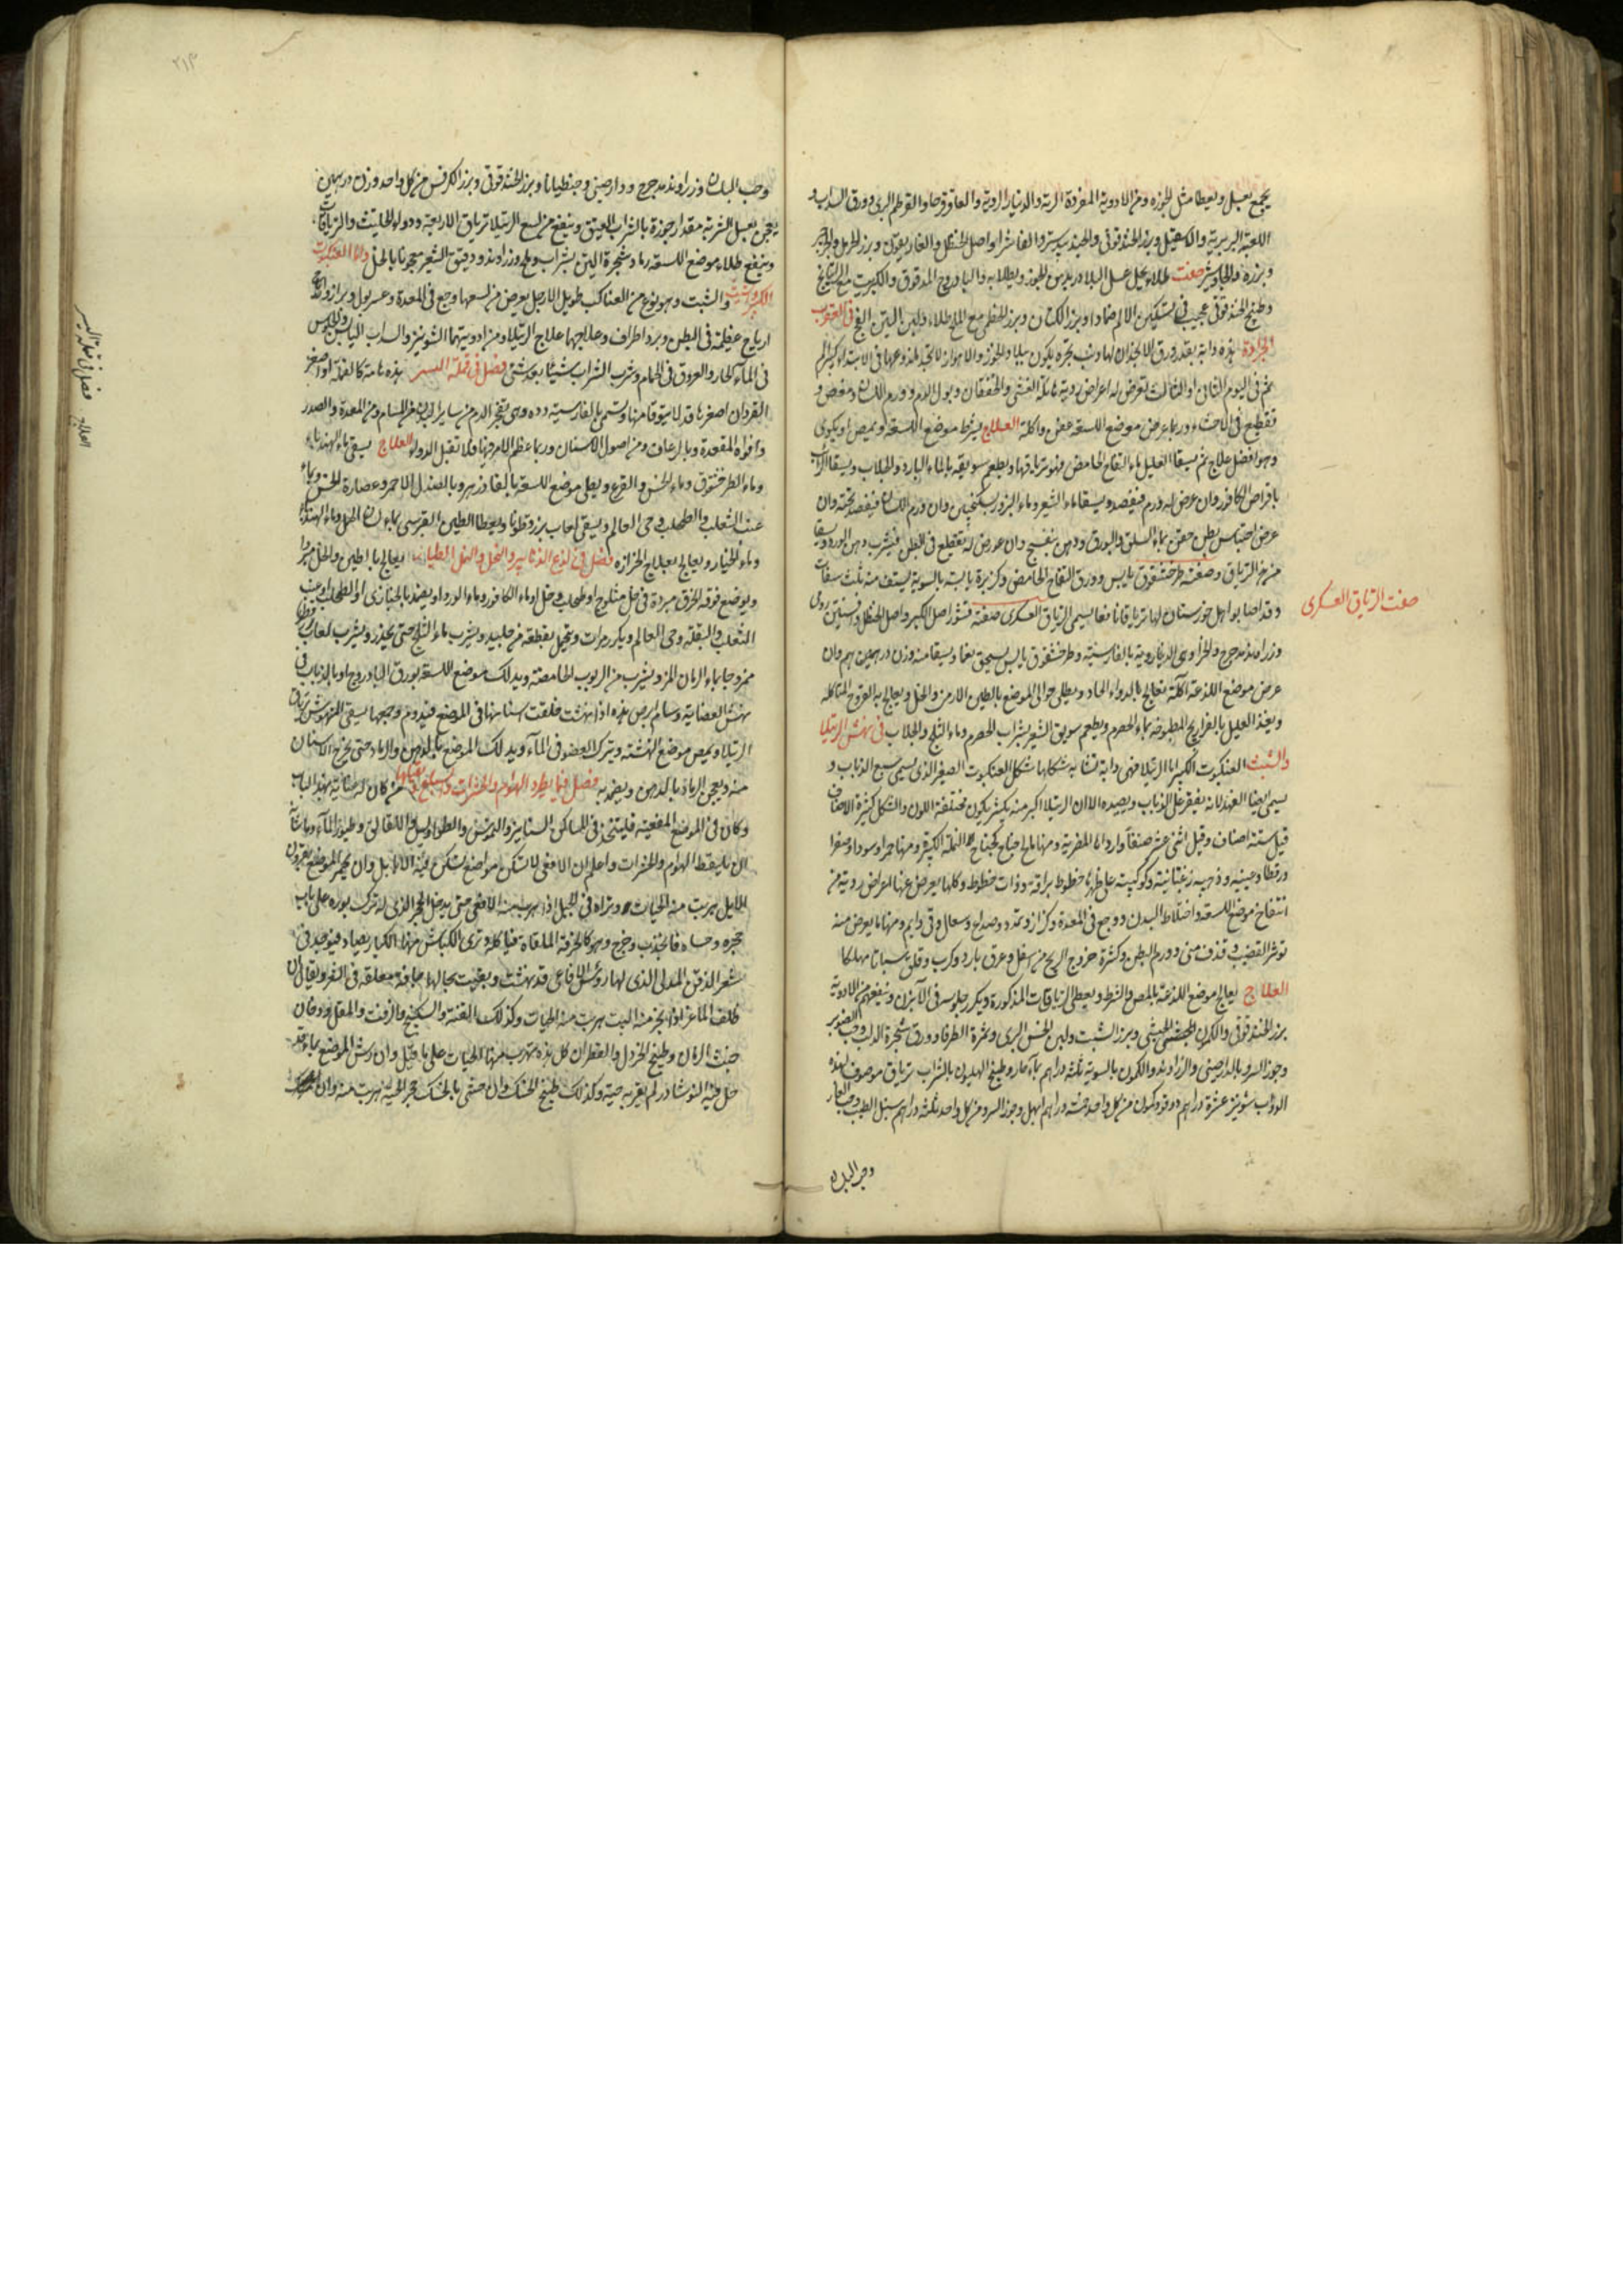 يجمع بعسل ويعطا مثل الجوزه ومن الادوية المفردة الرتة والدينارالروية والعاقرقرحا والقرطم البرى وورق السداب و
اللعبة البربرية والاسقيل وبزر الحندقوقى والجندبيدستر والفاشرا واصل الحنظل والغاريقون وبزر الحرمل والجزر
وبزره والجاوشير صفت طلاء يحل عسل البلادر بدهن الجوز ويطلا به والباذروج المدقوق والكبريت مع الراتينج
وطبيخ الحندقوقى عجيب فى تسكين الالم ضمادا وبزر الكتان وبزر الخطمى مع الملح طلاء ولبن التين الفج فى العقرب
الجرارة هذه دابة بقدر ورق الانجدان لها ذنب تجره يكون ببلاد الخوز والاهواز لا تجد لذوعها فى الابتداء كبير الم
ثم فى اليوم الثانى او الثالث تعرض له اعراض ردية هايلة الغشى والخفقان وبول الدم وورم اللسان ومغص و
تقطيع فى الاحشاء وربما عرض موضع اللسعة عفن واكلة العلاج يشرط موضع اللسعة ويمص او يكوى
وهو افضل علاج ثم يسقا العليل ماء التفاح الحامض فهو ترياقها ويطعم سويقه بالماء البارد والجلاب ويسقا الرايب
باقراص الكافور وان عرض له ورم فيفصد ويسقا ماء الشعير وماء البزور بسكنجبين وان ورم اللسان فيفصد تحته وان
عرض احتباس بطن حقن بماء السلق والبورق ودهن بنفسج وان عرض له تقطيع فى البطن فيشرب دهن الورد ويسقا
من هذا الترياق وصفته طرخشقوق يابس وورق التفاح الحامض وكزبرة يابسة بالسوية يستف منه ثلث سفات
وقد اصابوا اهل خوزستان لها ترياقا نافعا يسمى الترياق العسكرى صفته قشور اصل الكبر واصل الحنظل وافسنتين رومى
صفت الترياق العسكرى
وزراوند مدحرج والخزا وى الدينارروية بالفارسية وطرخشقوق يابس يسحق نعما ويسقا منه وزن درهمين اهم وان
عرض موضع اللذعة اكلة تعالج بالدواء الحاد ويطلى حوالى الموضع بالطين الارمنى والخل ويعالج به القروح المتاكله
ويغذ العليل بالفراريج المطبوخه بماء الحصرم ويطعم سويق الشعير بشراب الحصرم وماء الثلج والجلاب فى نهش الرتيلا
والشبث العنكبوت الكبير اما الرتيلا فهى دابة تشابه شكلها شكل العنكبوت الصغير الذى يسمى سبع الذباب و
يسمى ايضا الفهد لانه يقفز على الذباب ويصيده الا ان الرتيلا اكبر منه بكثير يكون مختلفة اللون والشكل كثيرة الاصناف
قيل ستة اصناف وقيل اثنى عشر صنفا وارداها المصرية ومنها ما لها جناح كجناح النملة الكبيرة ومنها حمرا وسودا وصفرا
ورقطا وعينيه وذهبيه زغبانية وكوكبية على ظهرها خطوط براقة وذات خطوط وكلها يعرض عنها اعراض ردية من
انتفاخ موضع اللسعة واختلاط البدن ووجع فى المعدة وكزاز وتمدد وصداع وسعال وقى دايم ومنها ما يعرض منه
توتر القضيب وقذف منى وورم البطن وكثرة خروج الريح من سفل وعرق بارد وكرب وقلق سباتا مهلكا
العلاج يعالج موضع اللذعة بالمص والشرط ويعطى الترياقات المذكورة ويكرر جلوسه فى الآبزن وينفعهم من الادوية
بزر الحندقوقى والكمون الحبشى وبزر الشبت ولبن الخس البرى وثمرة الطرفا وورق شجرة الدلب وحب الصنوبر
وجوز السرو والدارصينى والزراوند والكمون بالسوية ثلثة دراهم بماء حار وطبيخ الهليون بالشراب ترياق موصوف لهذه
الدواب شونيز عشرة دراهم دوقو وكمون من كل واحد خمسة دراهم ابهل وجوز السرو من كل واحد ثلثة دراهم سنبل الطيب وحب الغار
وحب البلسان
وحب البلسان وزراوند مدحرج ودارصينى وجنطيانا وبزر الحندقوقى وبزر الكرفس من كل واحد وزن درهمين
يعجن بعسل الشربة مقدار جوزة بالشراب العتيق وينفع من لسع الرتيلا ترياق الاربعة ودواء الحلتيث والترياقات
وينفع طلاء موضع اللسعة رماد شجرة التين بشراب وملح وزراوند ودقيق الشعير معجونا بالخل واما العنكبوت
الكبير والشبث والشبث وهو نوع من العناكب طويل الارجل يعرض من لسعها وجع فى المعدة وعسر بول وبراز واحتباس
ارياح غليظة فى البطن وبرد اطراف وعلاجها علاج الرتيلا ومن ادويتهما الشونيز والسداب اليابس والجلوس
فى الماء الحار والعروق فى الحمام وشرب الشراب شيئا بعد شئ فصل فى قملة النسر هذه هامة كالقملة او اصغر
القردان اصغر ما قد لا يتوقا منها وتسمى بالفارسية دده وهى تفجر الدم من ساير البدن من المسام ومن المعدة والصدر
وافواه المقعدة وبالرعاف ومن اصول الاسنان وربما عظم الامر حتى فلا تقبل الدواء العلاج يسقى ماء الهندباء
وماء الطرخشقوق وماء الخس والقرع ويطلى موضع اللسعة بالفادزهر وبالصندل الاحمر وعصارة الخس وماء
عنب الثعلب والطحلب وحى العالم ويسقى لعاب بزرقطونا ويعطا الطين القبرسى بماء لسان الحمل وماء الهندباء
وماء الخيار ويعالج بعلاج الجرارة فصل فى لذع الزنابير والنحل والنمل الطيارة يعالج بالطين والخل مبردا
ويوضع فوقه الخرق مبردة فى خل مثلوج او طحلب وخل او ماء الكافور وماء الورد او يضمد بالخبازى او الطحلب او عنب
الثعلب والبقلة وحى العالم ويكرر مرات ويتحمل بقطعة من جليد ويشرب ماء الثلج حتى يخدر ويشرب لعاب بزرقطونا
ممزوجا بماء الرمان المز ويشرب من الربوب الحامضة ويدلك موضع اللسعة بورق الباذروج او بالذباب فى
نهش العضاية وسام ابرص هذه اذا نهشت خلفت بسنانها فى الموضع فيدوم وجعها يسقى المنهوش ترياق
الرتيلا ويمص موضع النهشة ويترك العضو فى الماء ويدلك الموضع بالدهن والرماد حتى يخرج الاسنان
منه ويعجن الرماد بالدهن ويضمد به فصل فيما يطرد الهوام والحشرات والسباع من كان له عناية بهذا الباب
وكان فى الموضع المفعية فليتخذ فى المساكن السنانير والنمس والطواويس واللقالق وطيور الماء وما شاء
ان يلتقط الهوام والحشرات واعلم ان الافعى لا تسكن مواضع تسكن فيه الايايل وان بخر الموضع بقرون
الايل هربت منه الحيات وتراه فى الجبل اذا هربت منه الافعى حتى يدخل الجحر الذى له ترك بوزه على باب
جحره وحساه فانجذب وخرج وهو كالخرقة الملقاة فياكله وترى الكباش منها الكبار يصاد فيوجد فى
شعر الذقن المدلى الذى لها رؤس الافاعى قد نهشت وبقيت بحالها جافة معلقة فى الشعر ويقال ان
ظلف الماعز اذا بخر منه البيت هربت منه الحيات وكذلك القنة والسكبينج والزفت والمقل ودخان
خشب الرمان وطبيخ الخردل والقطران كل هذه تهرب منها الحيات على ما قيل وان رش الموضع بماء قد
حل فيه النوشادر لم يقربه حية وكذلك طبيخ الحسك وان حشى بالحسك جحر الحية هربت منه وان
فصل فى قملة النسر
العلاج
٢١٣